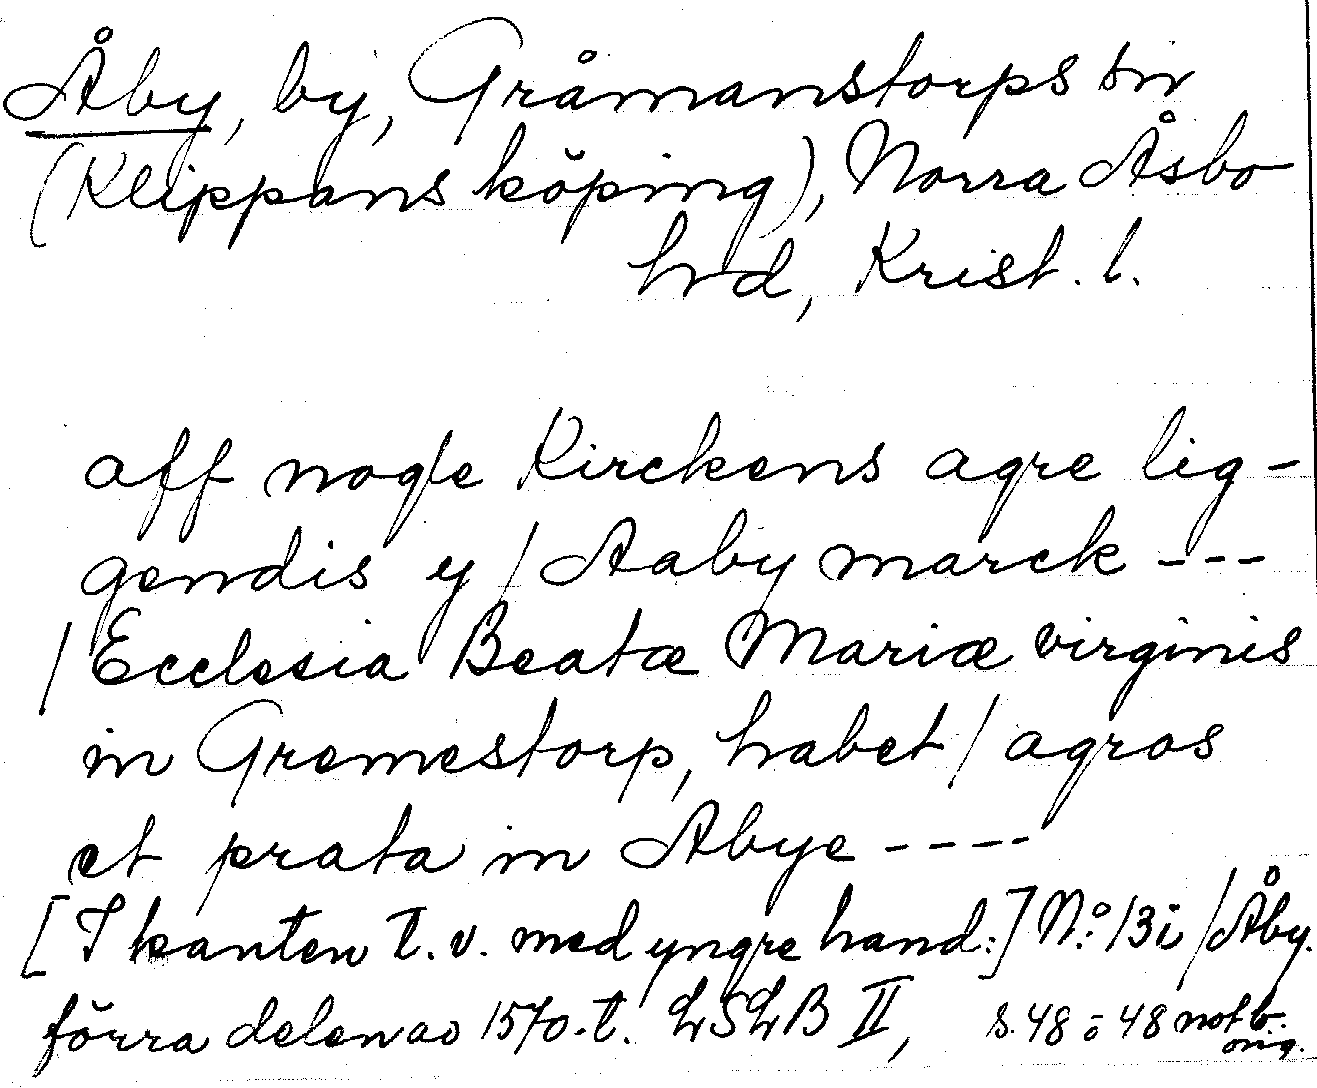 Åby, by, Gråmanstorps sn
(Klippans köping), Norra Åsbo
hd, Krist. l.
aff nogle Kirckens agre lig-
gendis y / Aaby marck ---
/ Ecclesia Beatæ Mariæ virginis
in Gremestorp, habet / agros
et prata in Abye ----
[I kanten t. v. med yngre hand:] N:o 13 i / Åby.
förra delen av 1570-t. LSLB II, s. 48 o 48 not b.
orig.